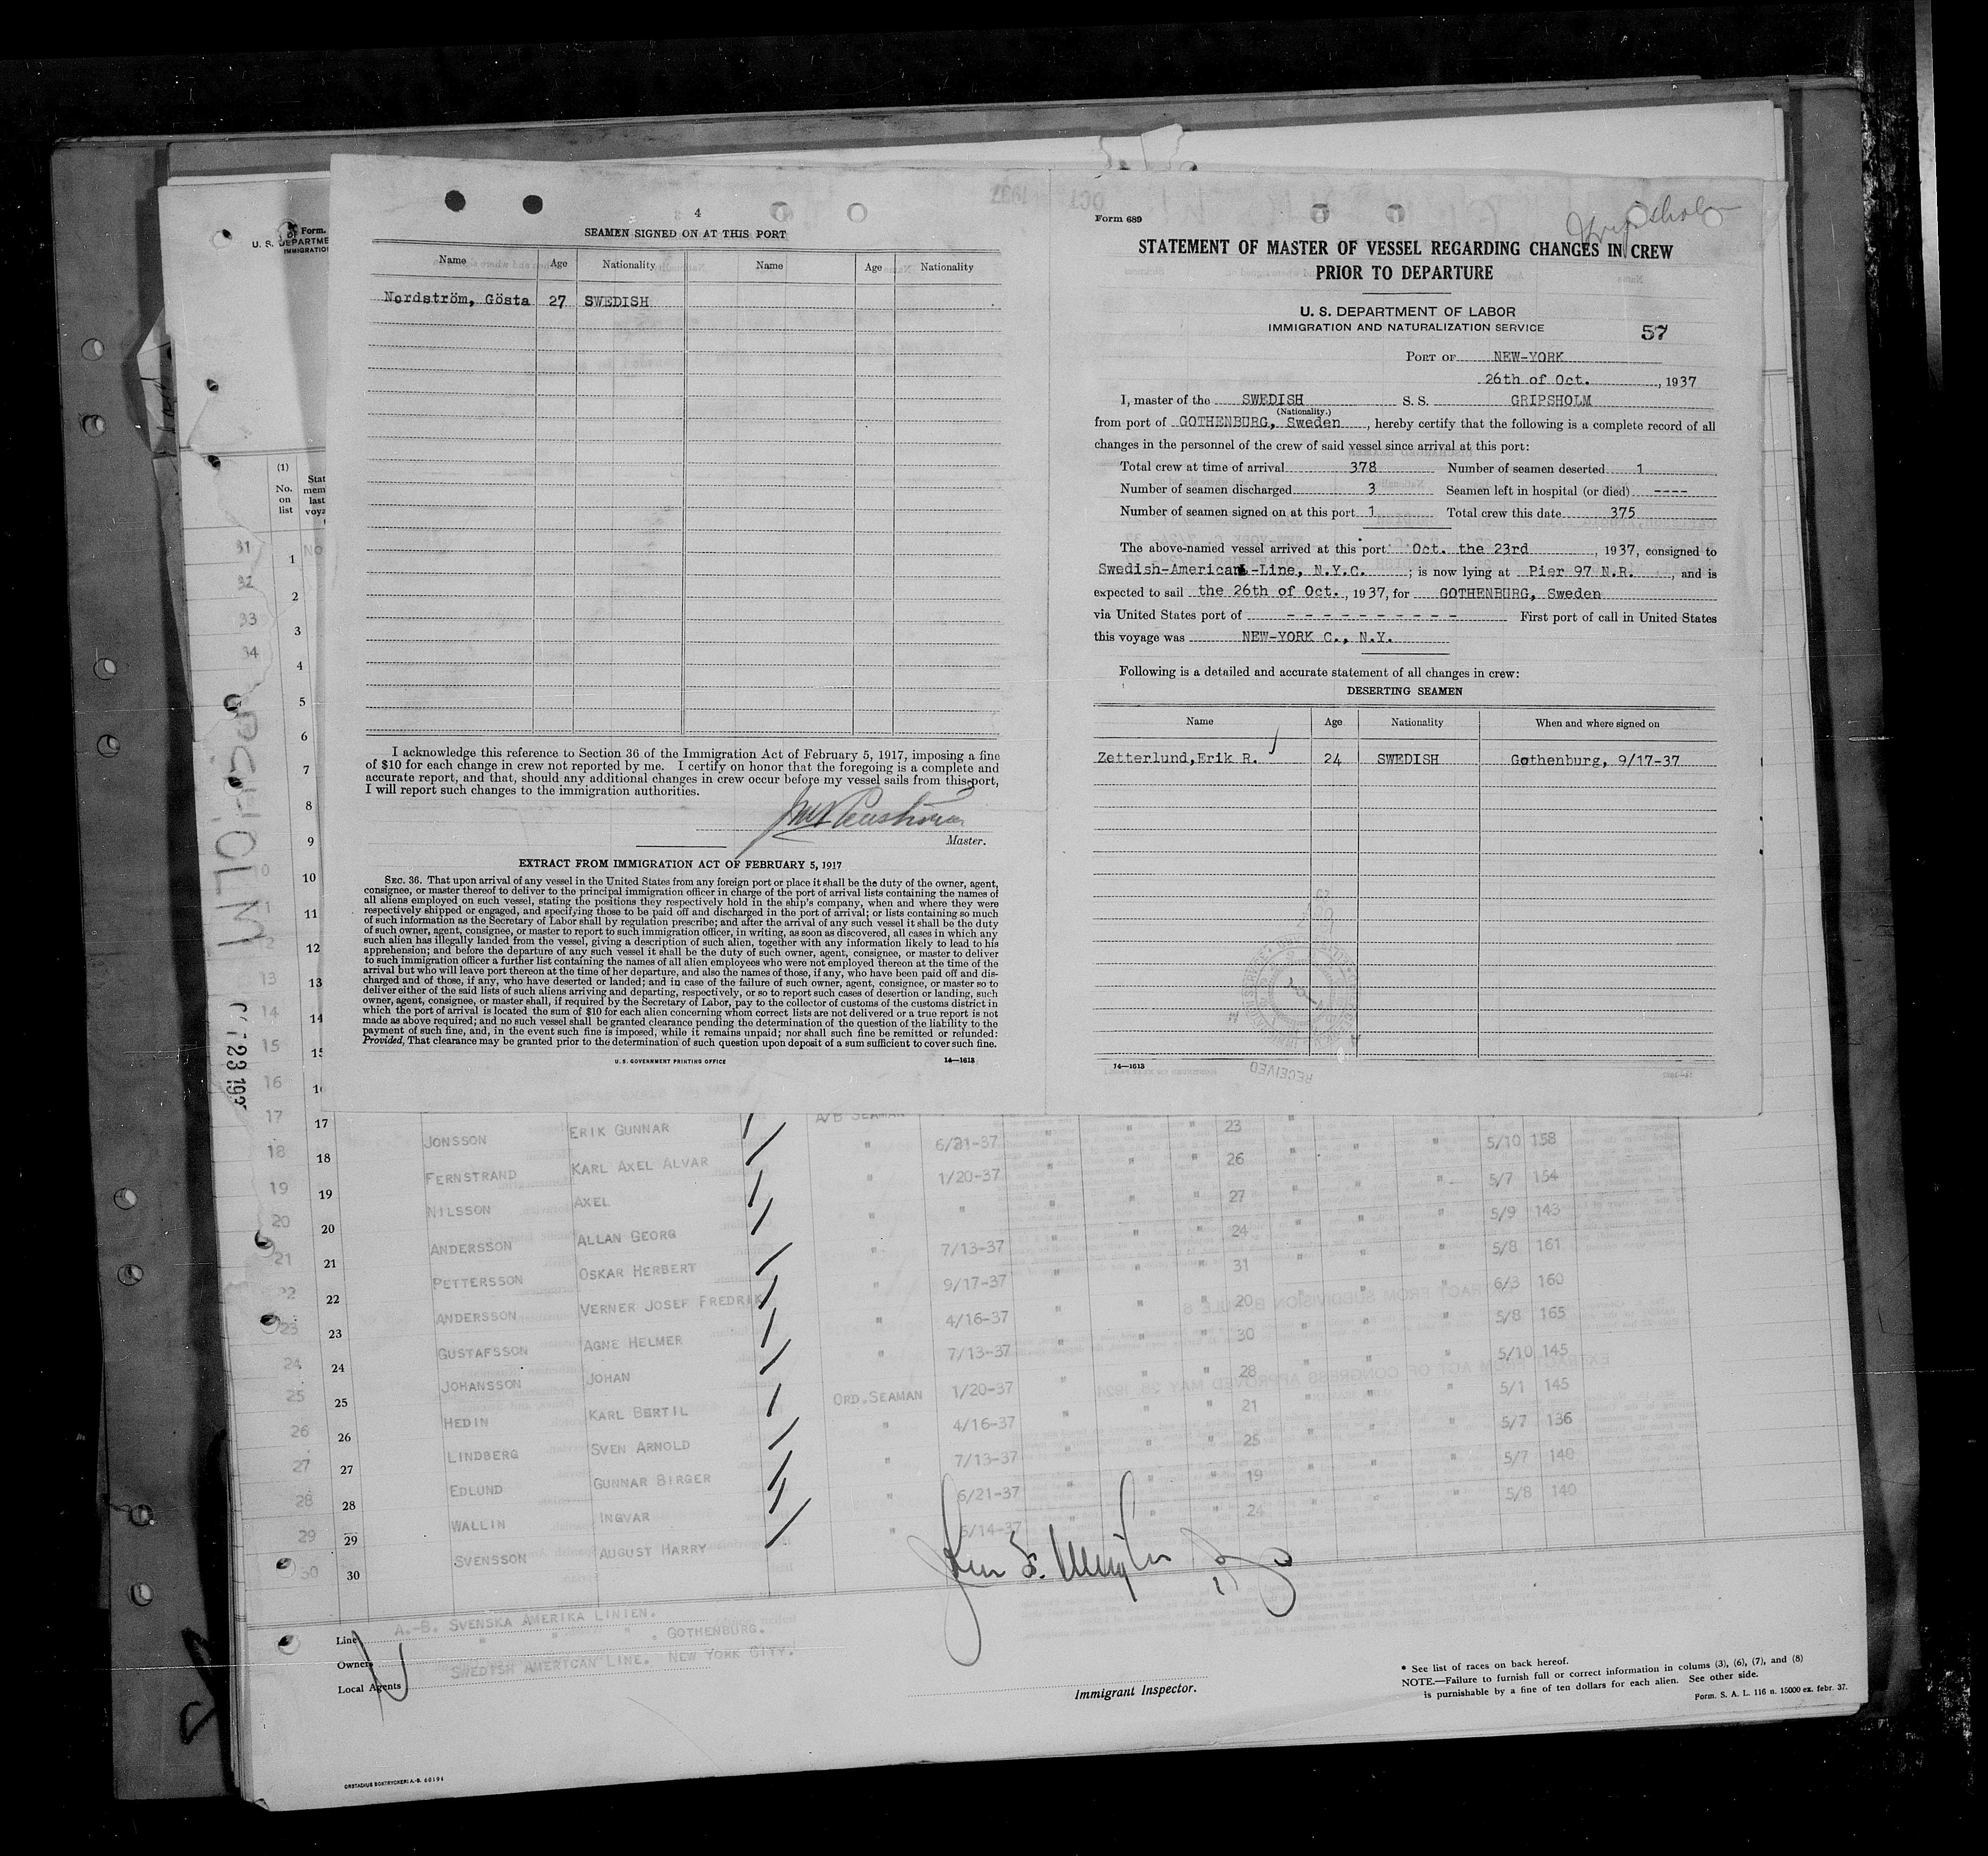 4
SEAMEN SIGNED ON AT THIS PORT
Name Age Nationality Name Age Nationality
Nordström, Gösta 27 SWEDISH
I acknowledge this reference to Section 36 of the Immigration Act of February 5, 1917, imposing a fine
of $10 for each change in crew not reported by me. I certify on honor that the foregoing is a complete and
accurate report, and that, should any additional changes in crew occur before my vessel sails from this port,
I will report such changes to the immigration authorities.
Master.
EXTRACT FROM IMMIGRATION ACT OF FEBRUARY 5, 1917
SEC. 36. That upon arrival of any vessel in the United States from any foreign port or place it shall be the duty of the owner, agent,
consignee, or master thereof to deliver to the principal immigration officer in charge of the port of arrival lists containing the names of
all aliens employed on such vessel, stating the positions they respectively hold in the ship's company, when and where they were
respectively shipped or engaged, and specifying those to be paid off and discharged in the port of arrival; or lists containing so much
of such information as the Secretary of Labor shall by regulation prescribe; and after the arrival of any such vessel it shall be the duty
of such owner, agent, consignee, or master to report to such immigration officer, in writing, as soon as discovered, all cases in which any
such alien has illegally landed from the vessel, giving a description of such alien, together with any information likely to lead to his
apprehension; and before the departure of any such vessel it shall be the duty of such owner, agent, consignee, or master to deliver
to such immigration officer a further list containing the names of all alien employees who were not employed thereon at the time of the
arrival but who will leave port thereon at the time of her departure, and also the names of those, if any, who have been paid off and dis-
charged and of those, if any, who have deserted or landed; and in case of the failure of such owner, agent, consignee, or master so to
deliver either of the said lists of such aliens arriving and departing, respectively, or so to report such cases of desertion or landing, such
owner, agent, consignee, or master shall, if required by the Secretary of Labor, pay to the collector of customs of the customs district in
which the port of arrival is located the sum of $10 for each alien concerning whom correct lists are not delivered or a true report is not
made as above required; and no such vessel shall be granted clearance pending the determination of the question of the liability to the
payment of such fine, and, in the event such fine is imposed, while it remains unpaid; nor shall such fine be remitted or refunded:
Provided, That clearance may be granted prior to the determination of such question upon deposit of a sum sufficient to cover such fine.
U. S. GOVERNMENT PRINTING OFFICE 14—1613
Form 689
Gripsholm
STATEMENT OF MASTER OF VESSEL REGARDING CHANGES IN CREW
PRIOR TO DEPARTURE
U. S. DEPARTMENT OF LABOR
IMMIGRATION AND NATURALIZATION SERVICE
57
PORT OF NEW-YORK
26th of Oct., 1937
I, master of the SWEDISH S. S. GRIPSHOLM
(Nationality.)
from port of GOTHENBURG, Sweden, hereby certify that the following is a complete record of all
changes in the personnel of the crew of said vessel since arrival at this port:
Total crew at time of arrival 378 Number of seamen deserted 1
Number of seamen discharged 3 Seamen left in hospital (or died) ----
Number of seamen signed on at this port 1 Total crew this date 375
The above-named vessel arrived at this port Oct. the 23rd, 1937, consigned to
Swedish-American-Line, N.Y.C.; is now lying at Pier 97 N.R., and is
expected to sail the 26th of Oct., 1937, for GOTHENBURG, Sweden
via United States port of - - - - - - - - - - First port of call in United States
this voyage was NEW-YORK C., N.Y.
Following is a detailed and accurate statement of all changes in crew:
DESERTING SEAMEN
Name Age Nationality When and where signed on
Zetterlund, Erik R. 24 SWEDISH Gothenburg, 9/17-37
14—1613
RECEIVED
Form.
U. S. DEPARTME
IMMIGRATIO
(1)
No.
on
list
Stat
mem
last
voya
31 1 No
32 2
33 3
34 4
5
6
7
8
9
10 10
11
12
13 13
14 14
15 15
16
17 17 JONSSON ERIK GUNNAR A/B SEAMAN 6/21-37 " " " 23 " " " 5/10 158
18 18 FERNSTRAND KARL AXEL ALVAR " 1/20-37 " " " 26 " " " 5/7 154
19 19 NILSSON AXEL " " " " " 27 " " " 5/9 143
20 20 ANDERSSON ALLAN GEORG " 7/13-37 " " " 24 " " " 5/8 161
21 21 PETTERSSON OSKAR HERBERT " 9/17-37 " " " 31 " " " 6/3 160
22 22 ANDERSSON VERNER JOSEF FREDRIK " 4/16-37 " " " 20 " " " 5/8 165
23 23 GUSTAFSSON AGNE HELMER " 7/13-37 " " " 30 " " " 5/10 145
24 24 JOHANSSON JOHAN ORD.SEAMAN 1/20-37 " " " 28 " " " 5/1 145
25 25 HEDIN KARL BERTIL " 4/16-37 " " " 21 " " " 5/7 136
26 26 LINDBERG SVEN ARNOLD " 7/13-37 " " " 25 " " " 5/7 140
27 27 EDLUND GUNNAR BIRGER " 6/21-37 " " " 19 " " " 5/8 140
28 28 WALLIN INGVAR " 6/14-37 " " " 24
29 29 SVENSSON AUGUST HARRY
30 30
GRIPSHOLM
OCT 23 1937
Line A.-B. SVENSKA AMERIKA LINIEN.
Owners " " " . GOTHENBURG.
Local Agents SWEDISH AMERICAN LINE. NEW YORK CITY.
Immigrant Inspector.
* See list of races on back hereof.
NOTE.—Failure to furnish full or correct information in colums (3), (6), (7), and (8)
is punishable by a fine of ten dollars for each alien. See other side.
Form. S. A. L. 116 n. 15000 ex. febr. 37.
ORSTADIUS BOKTRYCKERI A.-B. 60194